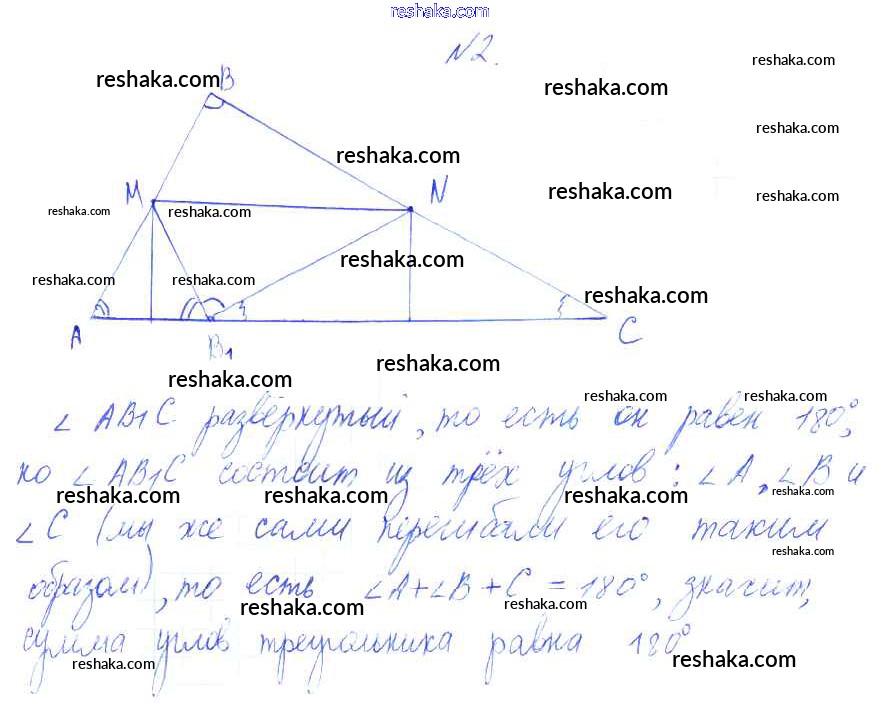 reshaka.com
№2.
reshaka.com B reshaka.com reshaka.com
reshaka.com reshaka.com
M N reshaka.com reshaka.com
reshaka.com reshaka.com
reshaka.com
reshaka.com reshaka.com reshaka.com
A B1 C
reshaka.com reshaka.com
reshaka.com reshaka.com
∠ AB1C развёрнутый, то есть он равен 180°,
но ∠ AB1C состоит из трёх углов: ∠A, ∠B и
reshaka.com reshaka.com reshaka.com reshaka.com
∠C (мы же сами перегибали его таким
reshaka.com
образом), то есть ∠A+∠B+C = 180°, значит,
reshaka.com reshaka.com
сумма углов треугольника равна 180°
reshaka.com reshaka.com